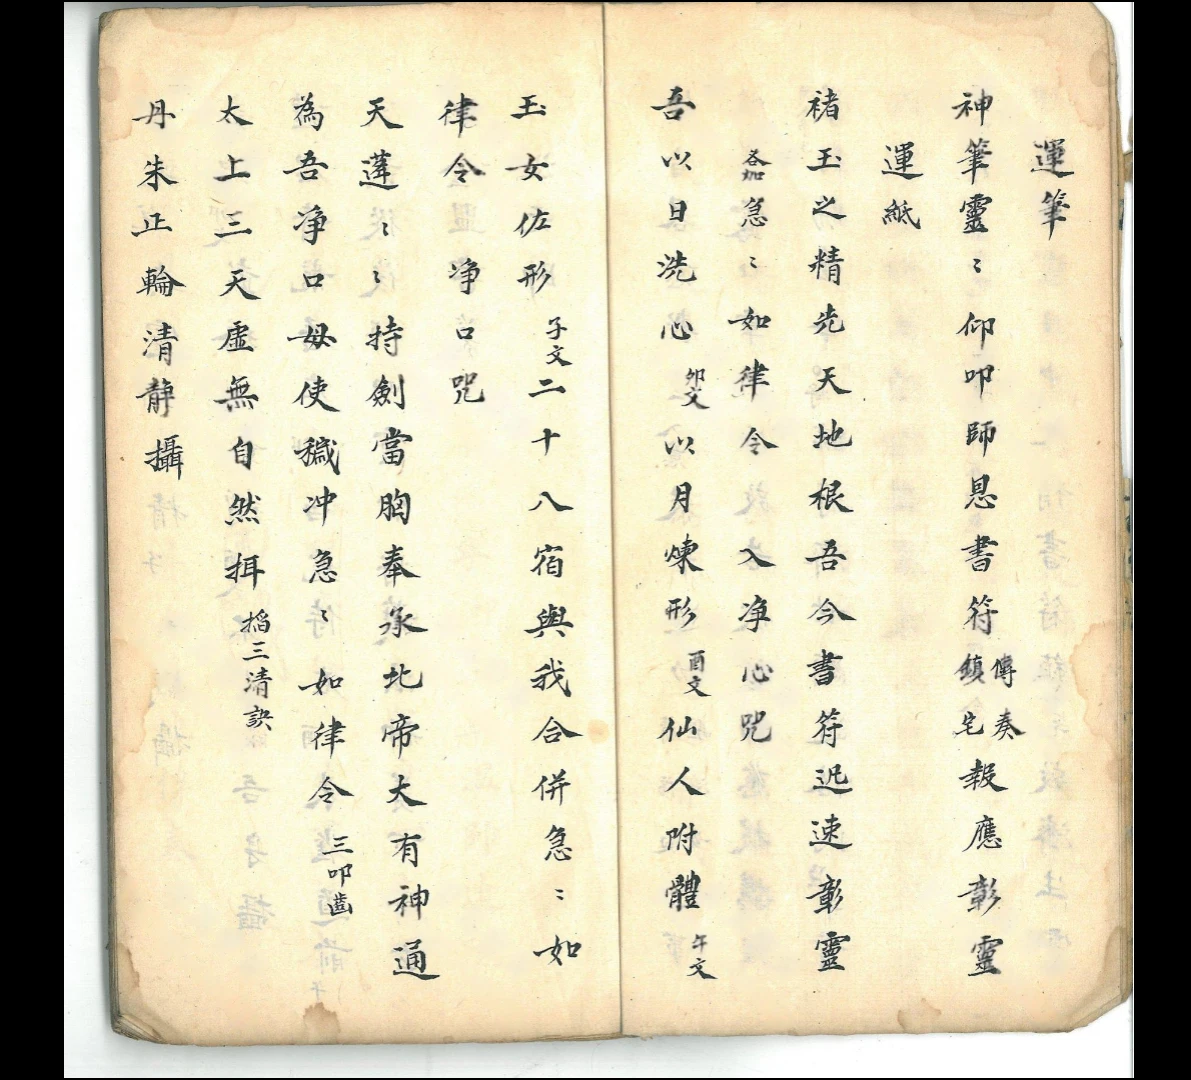 運筆
神筆靈〻仰叩師恩書符傳奏鎮宅報應彰靈
運紙
褚玉之精先天地根吾今書符迅速彰靈
各加急〻如律令　入净心咒
吾以日洗心卯文以月煉形酉文仙人附體午文
玉女佐形子文二十八宿與我合併急〻如
律令　净口咒
天蓬〻〻持劍當胸奉承北帝大有神通
為吾净口毋使穢冲急〻如律令三叩齒
太上三天虛無自然掐三清訣
丹朱正輪清靜攝